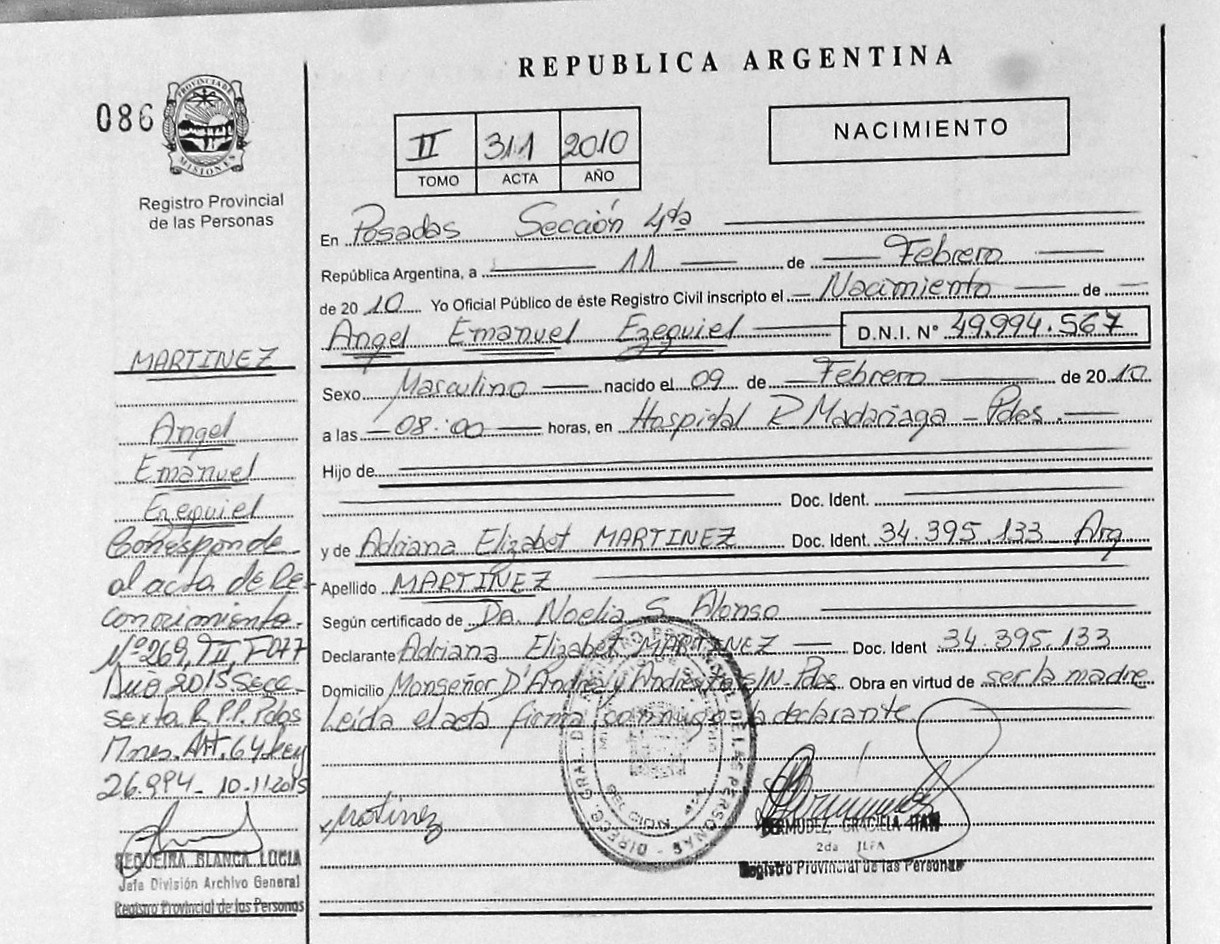 REPUBLICA ARGENTINA
086
PROVINCIA DE
MISIONES
Registro Provincial
de las Personas
II 311 2010
TOMO ACTA AÑO
NACIMIENTO
En Posadas Sección 4ta
República Argentina, a 11 de Febrero
de 2010 Yo Oficial Público de éste Registro Civil inscripto el Nacimiento de
Angel Emanuel Ezequiel D.N.I. N° 49.994.567
Sexo Masculino nacido el 09 de Febrero de 2010
a las 08:00 horas, en Hospital R Madariaga - Pdas.
Hijo de
Doc. Ident.
y de Adriana Elizabet MARTINEZ Doc. Ident. 34.395.133 Arg
Apellido MARTINEZ
Según certificado de Da. Noelia S. Alonso
Declarante Adriana Elizabet MARTINEZ Doc. Ident 34.395.133
Domicilio Monseñor D'Andrea y S/N - Pdas Obra en virtud de ser la madre
Leída el acta firma conmigo la declarante
MARTINEZ
Angel
Emanuel
Ezequiel
Corresponde
al acta de Re-
conocimiento
N° 269, TII, F-077
Año 2015 Secc.
sexta R.P.P. Pdas
Mnes. Art. 64 Ley
26.994 - 10-11-2015
SEQUEIRA BLANCA LUCIA
Jefa División Archivo General
Registro Provincial de las Personas
Martinez
DE LAS PERSONAS - DIREC. GRAL.
BERMUDEZ, GRACIELA
2da
Registro Provincial de las Personas